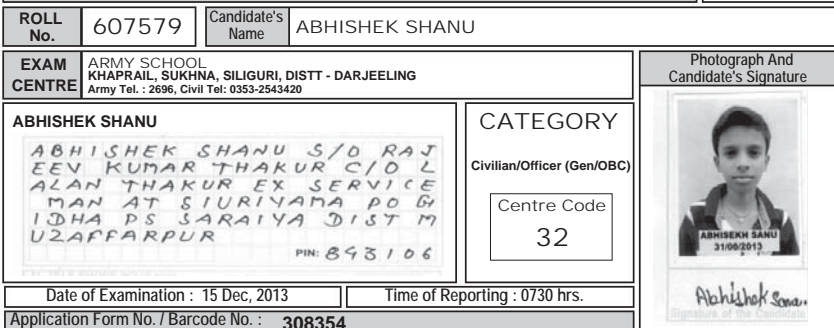 ROLL No. 607579 Candidate's Name ABHISHEK SHANU
EXAM CENTRE
ARMY SCHOOL
KHAPRAIL, SUKHNA, SILIGURI, DISTT - DARJEELING
Army Tel. : 2696, Civil Tel: 0353-2543420
Photograph And
Candidate's Signature
ABHISHEK SHANU
ABHISHEK SHANU S/O RAJ
EEV KUMAR THAKUR C/O L
ALAN THAKUR EX SERVICE
MAN AT SIURIYAMA PO G
IDHA PS SARAIYA DIST M
UZAFFARPUR
PIN: 843106
CATEGORY
Civilian/Officer (Gen/OBC)
Centre Code
32
ABHISEKH SANU
31/08/2013
Abhishek Sanu.
Signature of the Candidate
Date of Examination : 15 Dec, 2013
Time of Reporting : 0730 hrs.
Application Form No. / Barcode No. : 308354